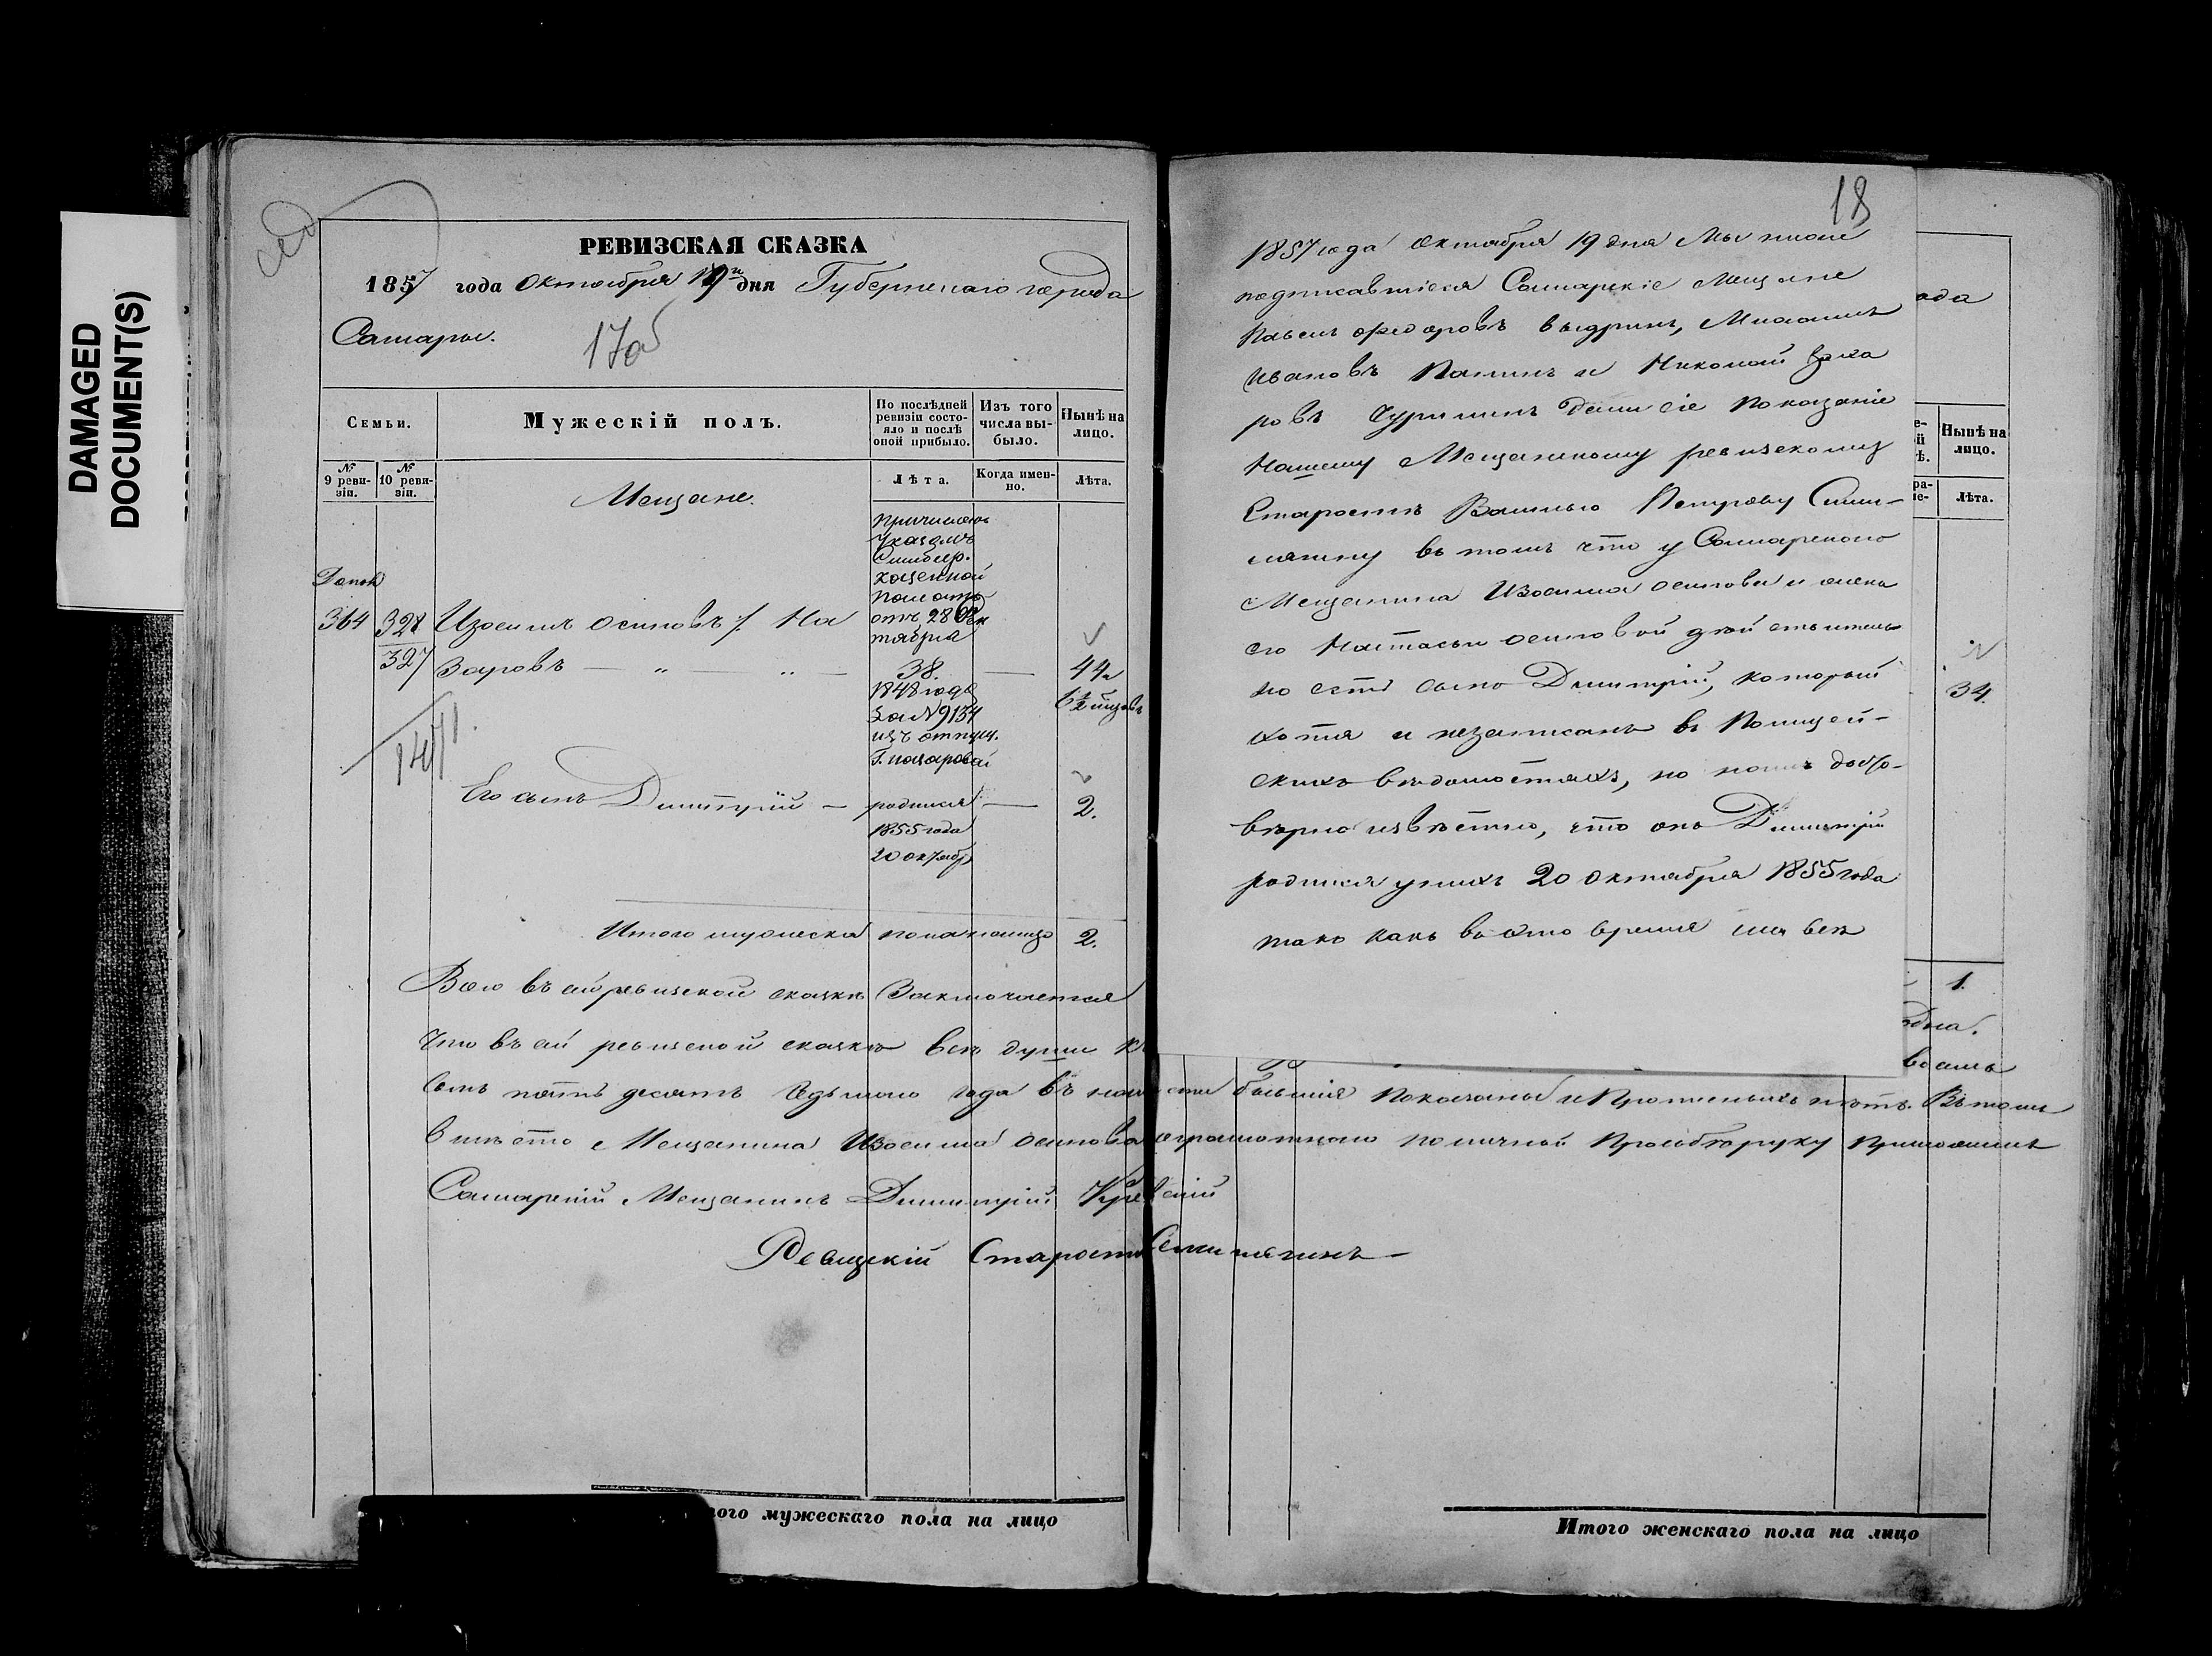 DAMAGED
DOCUMENT(S)
РЕВИЗСКАЯ СКАЗКА
1857 года Октября 19 дня Губернскаго города
Самары.
17об
Семьи.
Мужескій полъ.
По послѣдней ревизіи состояло и послѣ оной прибыло.
Изъ того числа выбыло.
Нынѣ на лицо.
№ 9 ревизіи.
№ 10 ревизіи.
Лѣта.
Когда именно.
Лѣта.
Мещане.
указомъ
казенной
отъ 28 Сен
тября
364 328 Изосимъ Осиповъ
327
38. 44
1848 года
за № 9134
Его сынъ Димитрій — родился — 2.
1855 года
20 октябр
Итого мужеска пола налицо 2.
Всего въ сей ревизской сказкѣ Заключается
Что въ сей ревизской сказкѣ всѣ души
пять десятъ седьмаго года въ
вмѣсто Мещанина Изосима Осипова неграмотнаго по личной Прозьбѣ руку приложилъ
Самарскій Мещанинъ Димитрій
Ревизскій Староста Симинягинъ
ого мужескаго пола на лицо
18
1857 года Октября 19 дня Мы ниже
подписавшіеся Самарскіе Мещане
Павелъ Федоровъ Выдринъ, Михаилъ
Ивановъ Панинъ и Николай Заха
ровъ Чурилинъ дали сіе показаніе
Нашему Мещанскому ревизскому
Старостѣ Василью Петрову Сими-
нягину въ томъ что у Самарскаго
Мещанина Изосима Осипова и жены
его Настасьи Осиповой дѣйствитель
но есть сынъ Димитрій, который
хотя и незаписанъ въ Полицей-
скихъ вѣдомостяхъ, но намъ досто-
вѣрно извѣстно, что онъ Димитрій
родился у нихъ 20 Октября 1855 года
такъ какъ въ это время мы всѣ
ода
Нынѣ на лицо.
Лѣта.
34.
1.
одна.
Итого женскаго пола на лицо